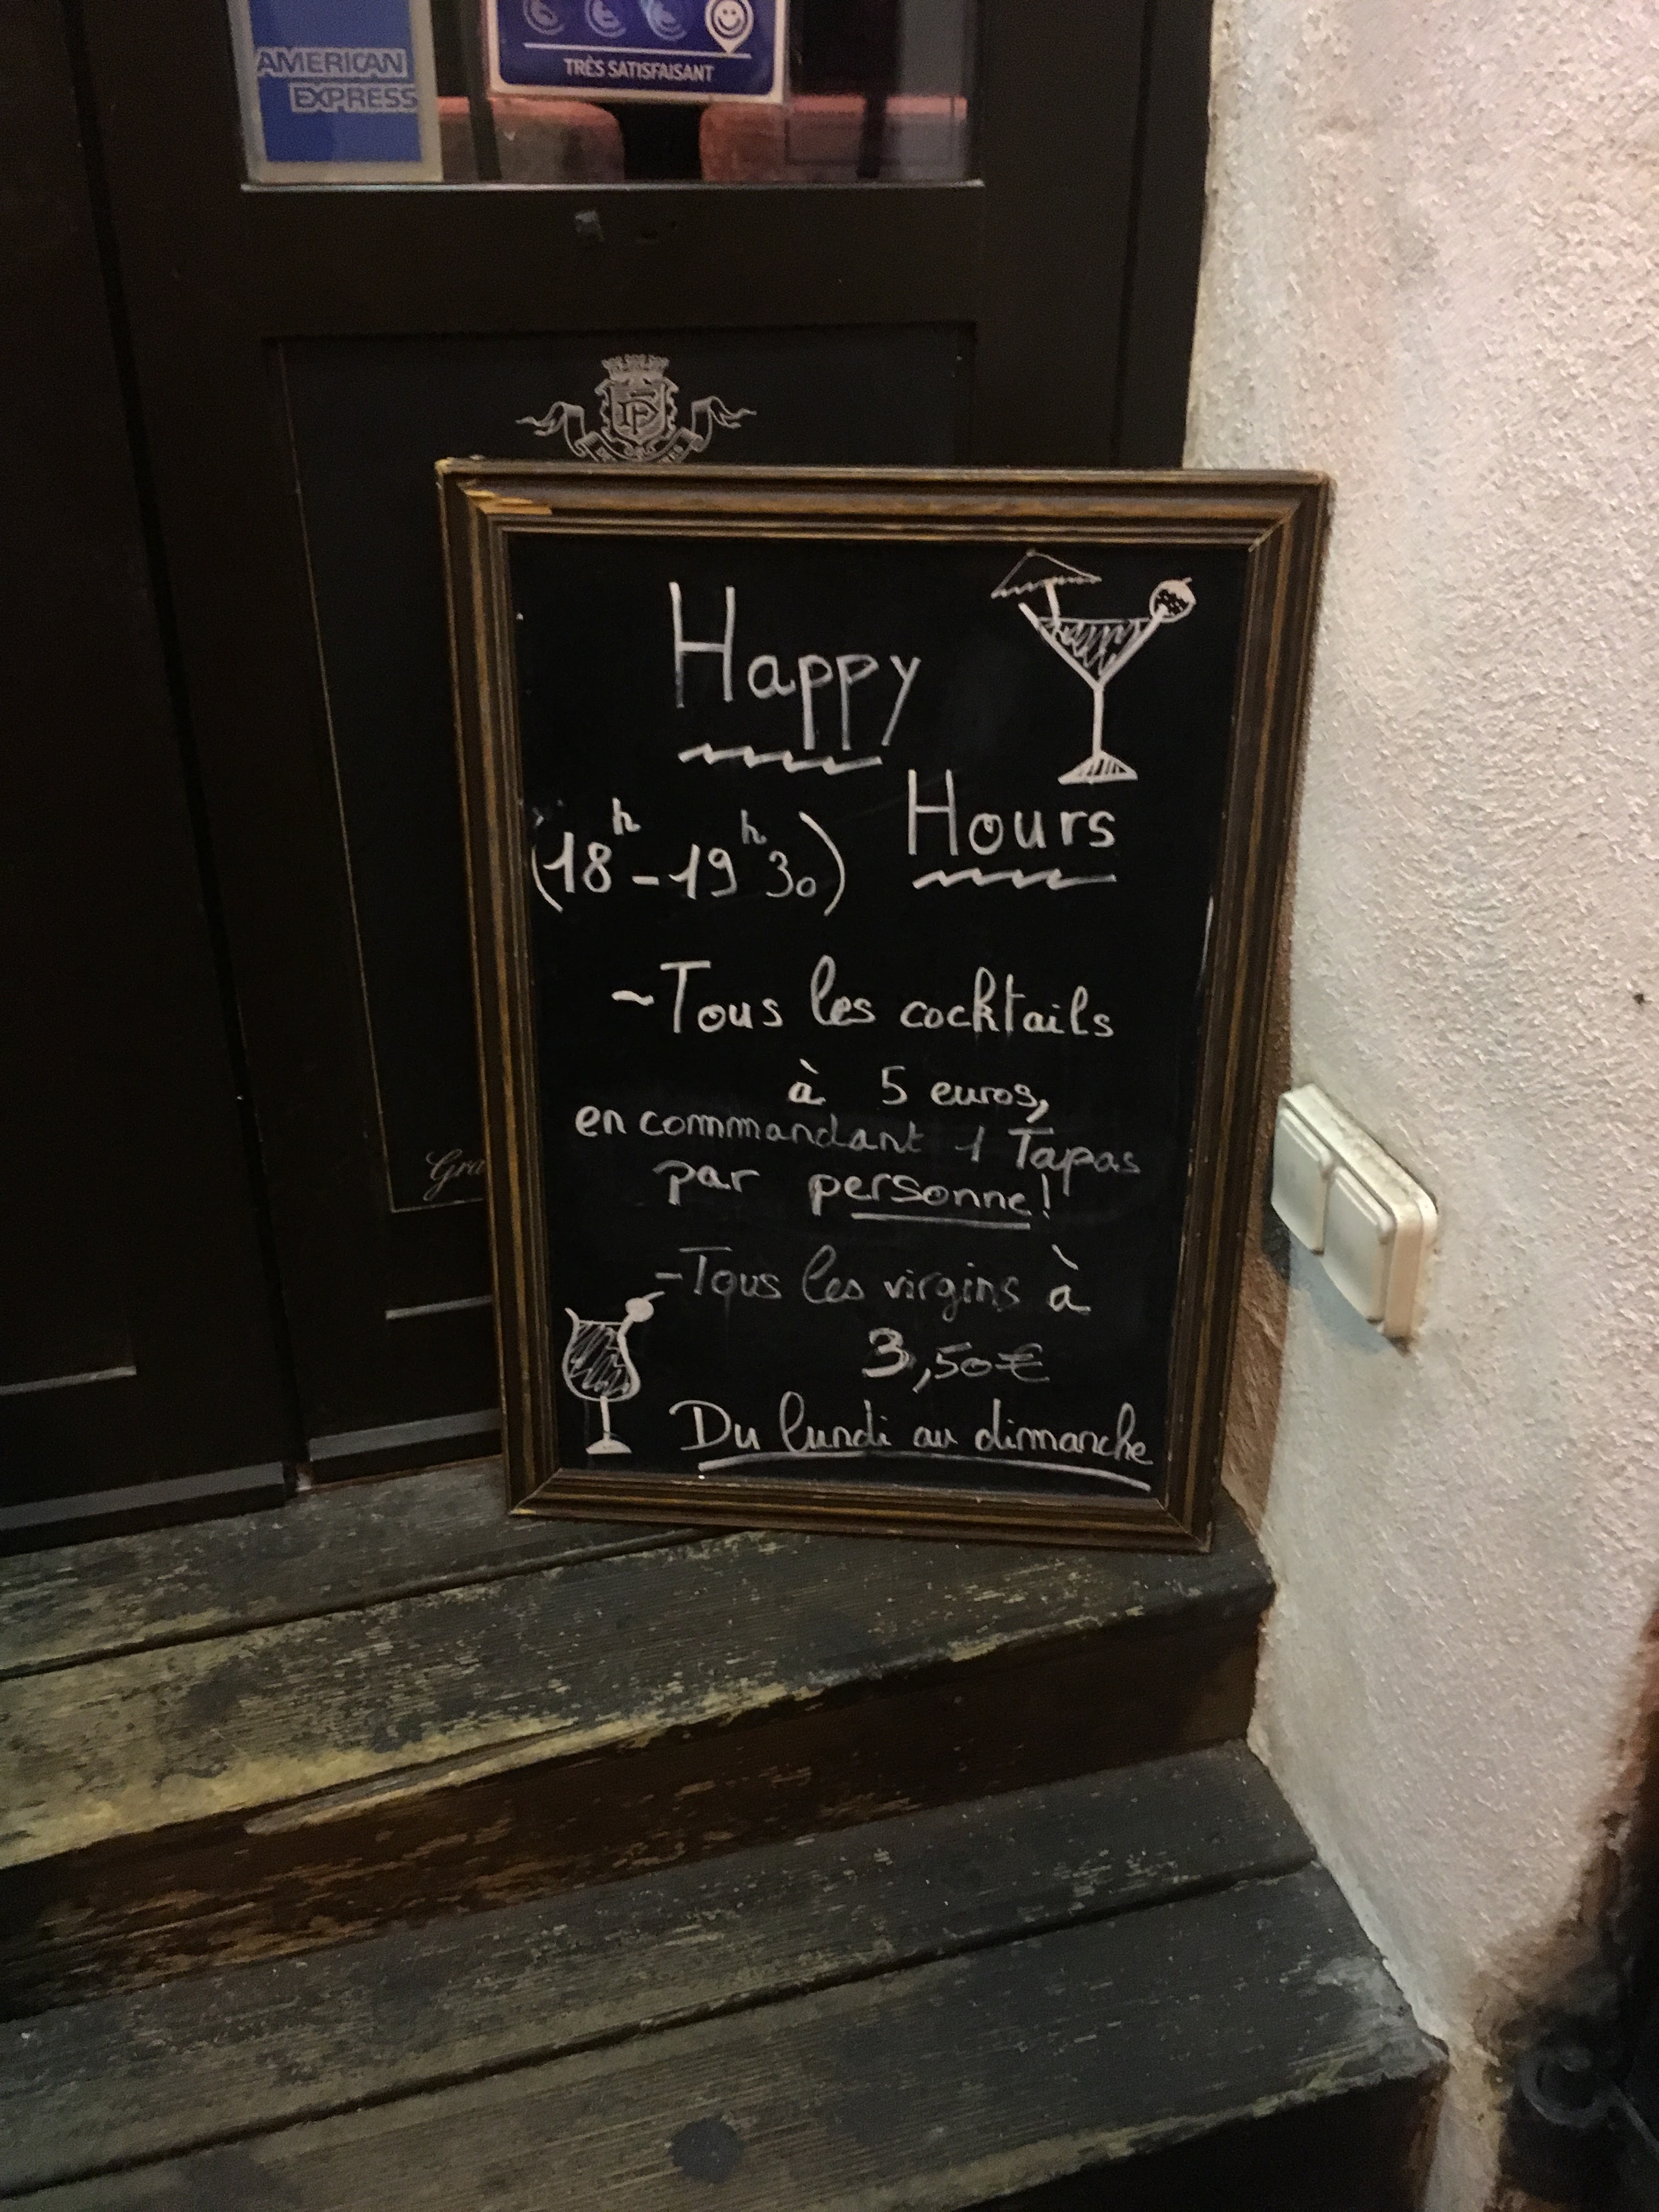 AMERICAN
EXPRESS
TRÈS SATISFAISANT
Happy
Hours
(18h-19h30)
~Tous les cocktails
à 5 euros,
en commandant 1 Tapas
par personne!
-Tous les virgins à
3,50€
Du lundi au dimanche